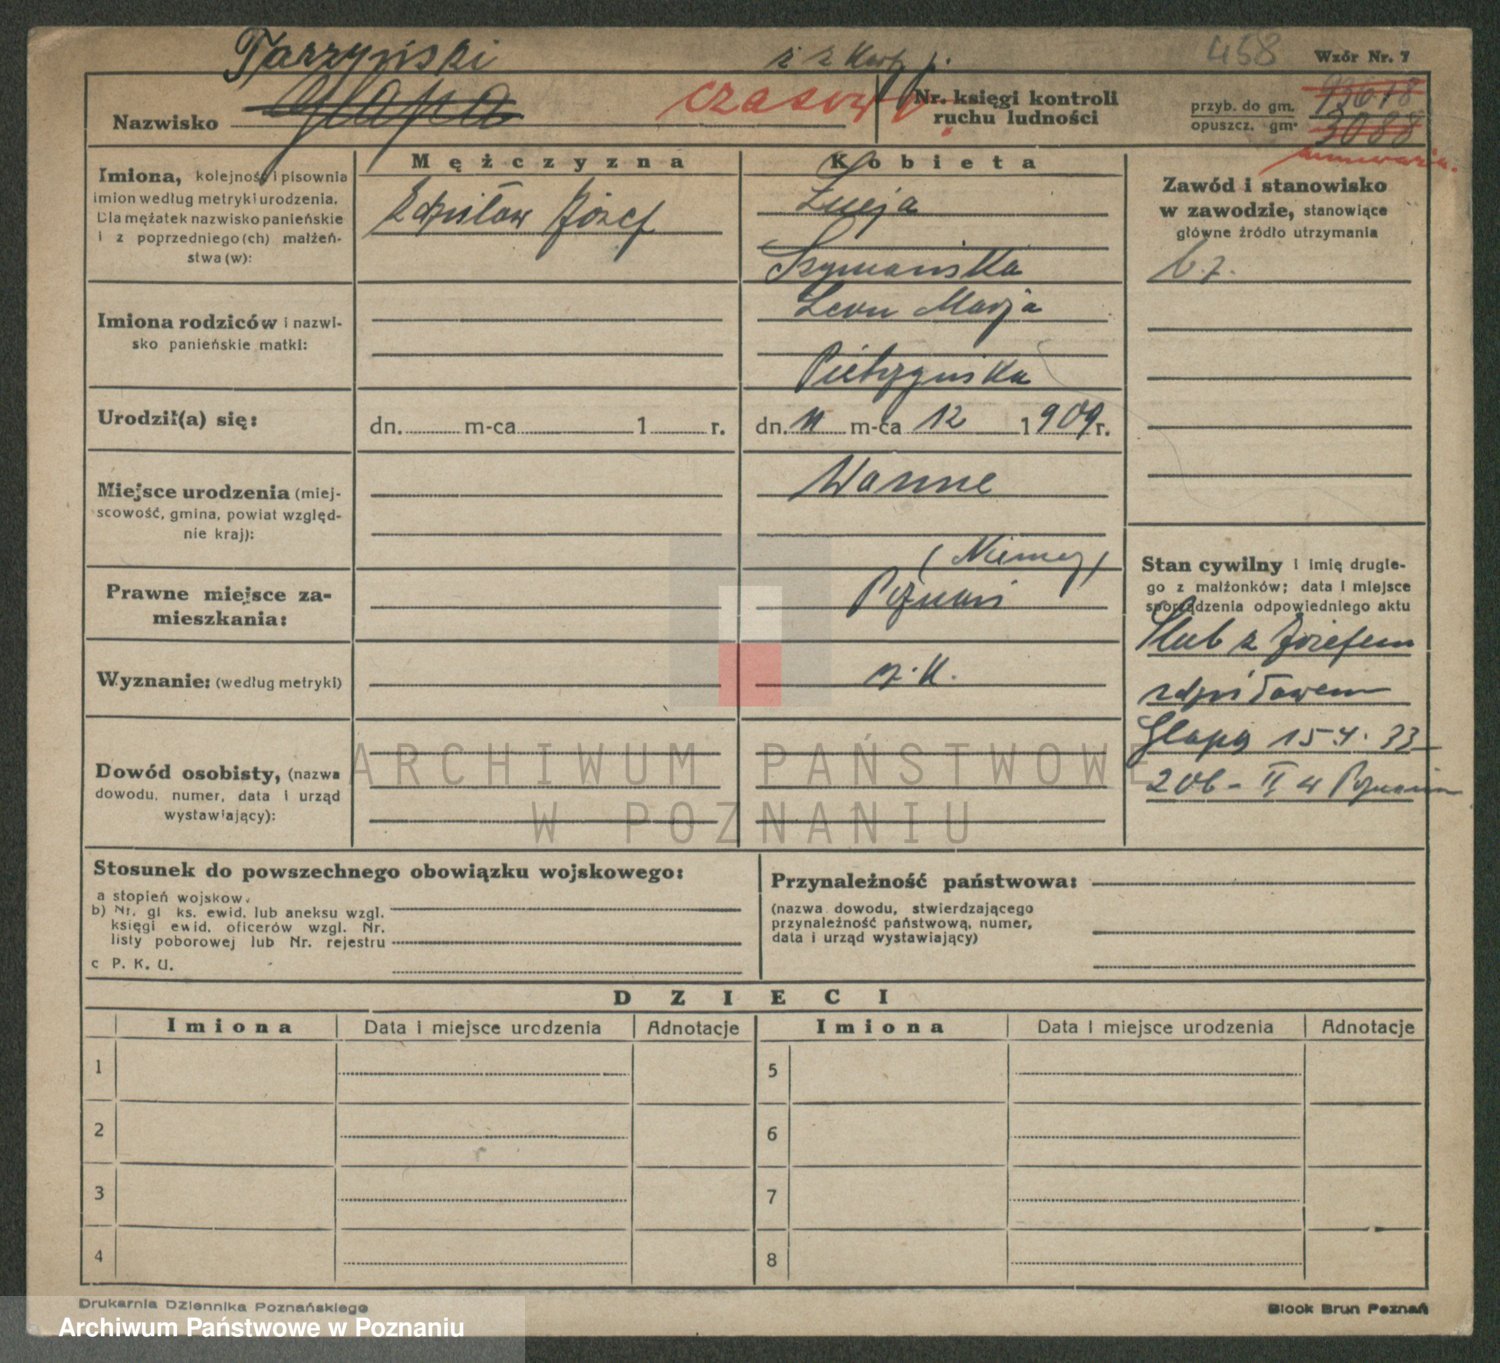 Tarzyński
458
Wzór Nr. 7
Nazwisko Glapa
czasowy
Nr. księgi kontroli
ruchu ludności
przyb. do gm. 
opuszcz. gm. 3088
Mężczyzna
Kobieta
Imiona, kolejność i pisownia
imion według metryki urodzenia.
Dla mężatek nazwisko panieńskie
i z poprzedniego(ch) małżeń-
stwa(w):
Zdzisław Józef
Łucja
Szymańska
Zawód i stanowisko
w zawodzie, stanowiące
główne źródło utrzymania
b. z.
Imiona rodziców i nazwi-
sko panieńskie matki:
Leon Marja
Pietrzyńska
Urodził(a) się:
dn. m-ca 1 r.
dn. 11 m-ca 12 1909 r.
Miejsce urodzenia (miej-
scowość, gmina, powiat względ-
nie kraj):
Wanne
(Niemcy)
Prawne miejsce za-
mieszkania:
Poznań
Wyznanie: (według metryki)
r. k.
Dowód osobisty, (nazwa
dowodu, numer, data i urząd
wystawiający):
Stan cywilny i imię drugie-
go z małżonków; data i miejsce
sporządzenia odpowiedniego aktu
Ślub z Józefem
Zdzisławem
Glapą 15 4. 33
206 - II 4 Poznań
ARCHIWUM PAŃSTWOWE
W POZNANIU
Stosunek do powszechnego obowiązku wojskowego:
a stopień wojskow.
b) Nr. gł ks. ewid. lub aneksu wzgl.
księgi ewid. oficerów wzgl. Nr.
listy poborowej lub Nr. rejestru
c P. K. U.
Przynależność państwowa:
(nazwa dowodu, stwierdzającego
przynależność państwową, numer,
data i urząd wystawiający)
DZIECI
Imiona Data i miejsce urodzenia Adnotacje Imiona Data i miejsce urodzenia Adnotacje
1 5
2 6
3 7
4 8
Drukarnia Dziennika Poznańskiego
Block Brun Poznań
Archiwum Państwowe w Poznaniu